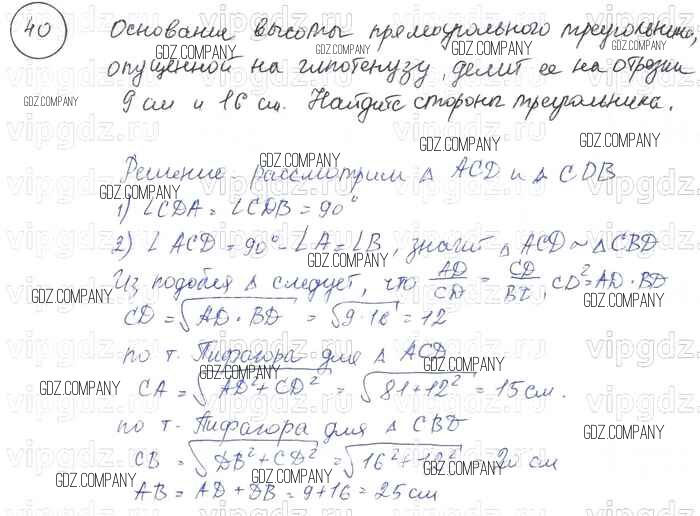 40 Основание высоты прямоугольного треугольника,
опущенной на гипотенузу, делит ее на отрезки
9 см и 16 см. Найдите стороны треугольника.
Решение - рассмотрим △ ACD и △ CDB
1) ∠CDA = ∠CDB = 90°
2) ∠ACD = 90° - ∠A = ∠B, значит △ ACD ~ △CBD
Из подобия △ следует, что AD/CD = CD/BD, CD² = AD · BD
CD = √AD · BD = √9 · 16 = 12
по т. Пифагора для △ ACD
CA = √AD² + CD² = √81 + 12² = 15 см.
по т. Пифагора для △ CBD
CB = √DB² + CD² = √16² + 12² = 20 см
AB = AD + DB = 9 + 16 = 25 см